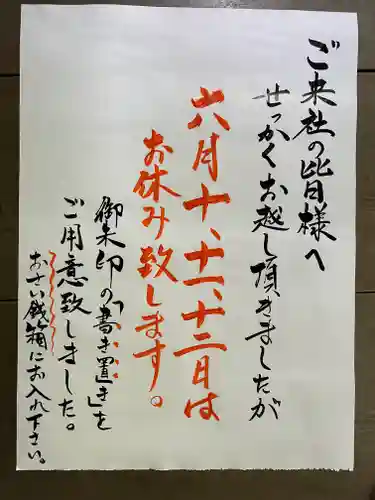 ご来社の皆様へ
せっかくお越し頂きましたが
六月十、十一、十二日は
お休み致します。
御朱印の「書き置き」を
ご用意致しました。
おさい銭箱にお入れ下さい。